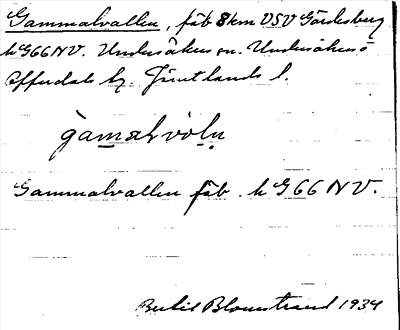 Gammalvallen, fäb 8 km VSV Gärdesberg
k G66NV. Undersåkers sn. Undersåkers o
Offerdals tg. Jämtlands l.
gamalvoln
Gammalvallen fäb. k G66 NV.
Bertil Blomstrand 1934